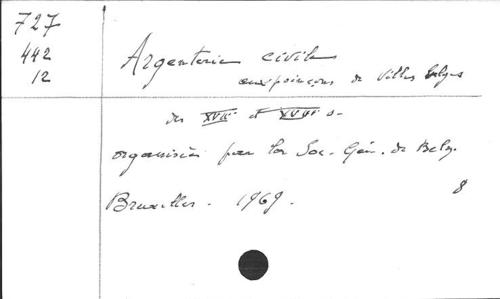 727
442
12
Argenterie civile
aux poinçons de villes belges
des XVIIe et XVIIIe s-
organisées par la Soc. Gén. de Belg.
Bruxelles. 1969.
8